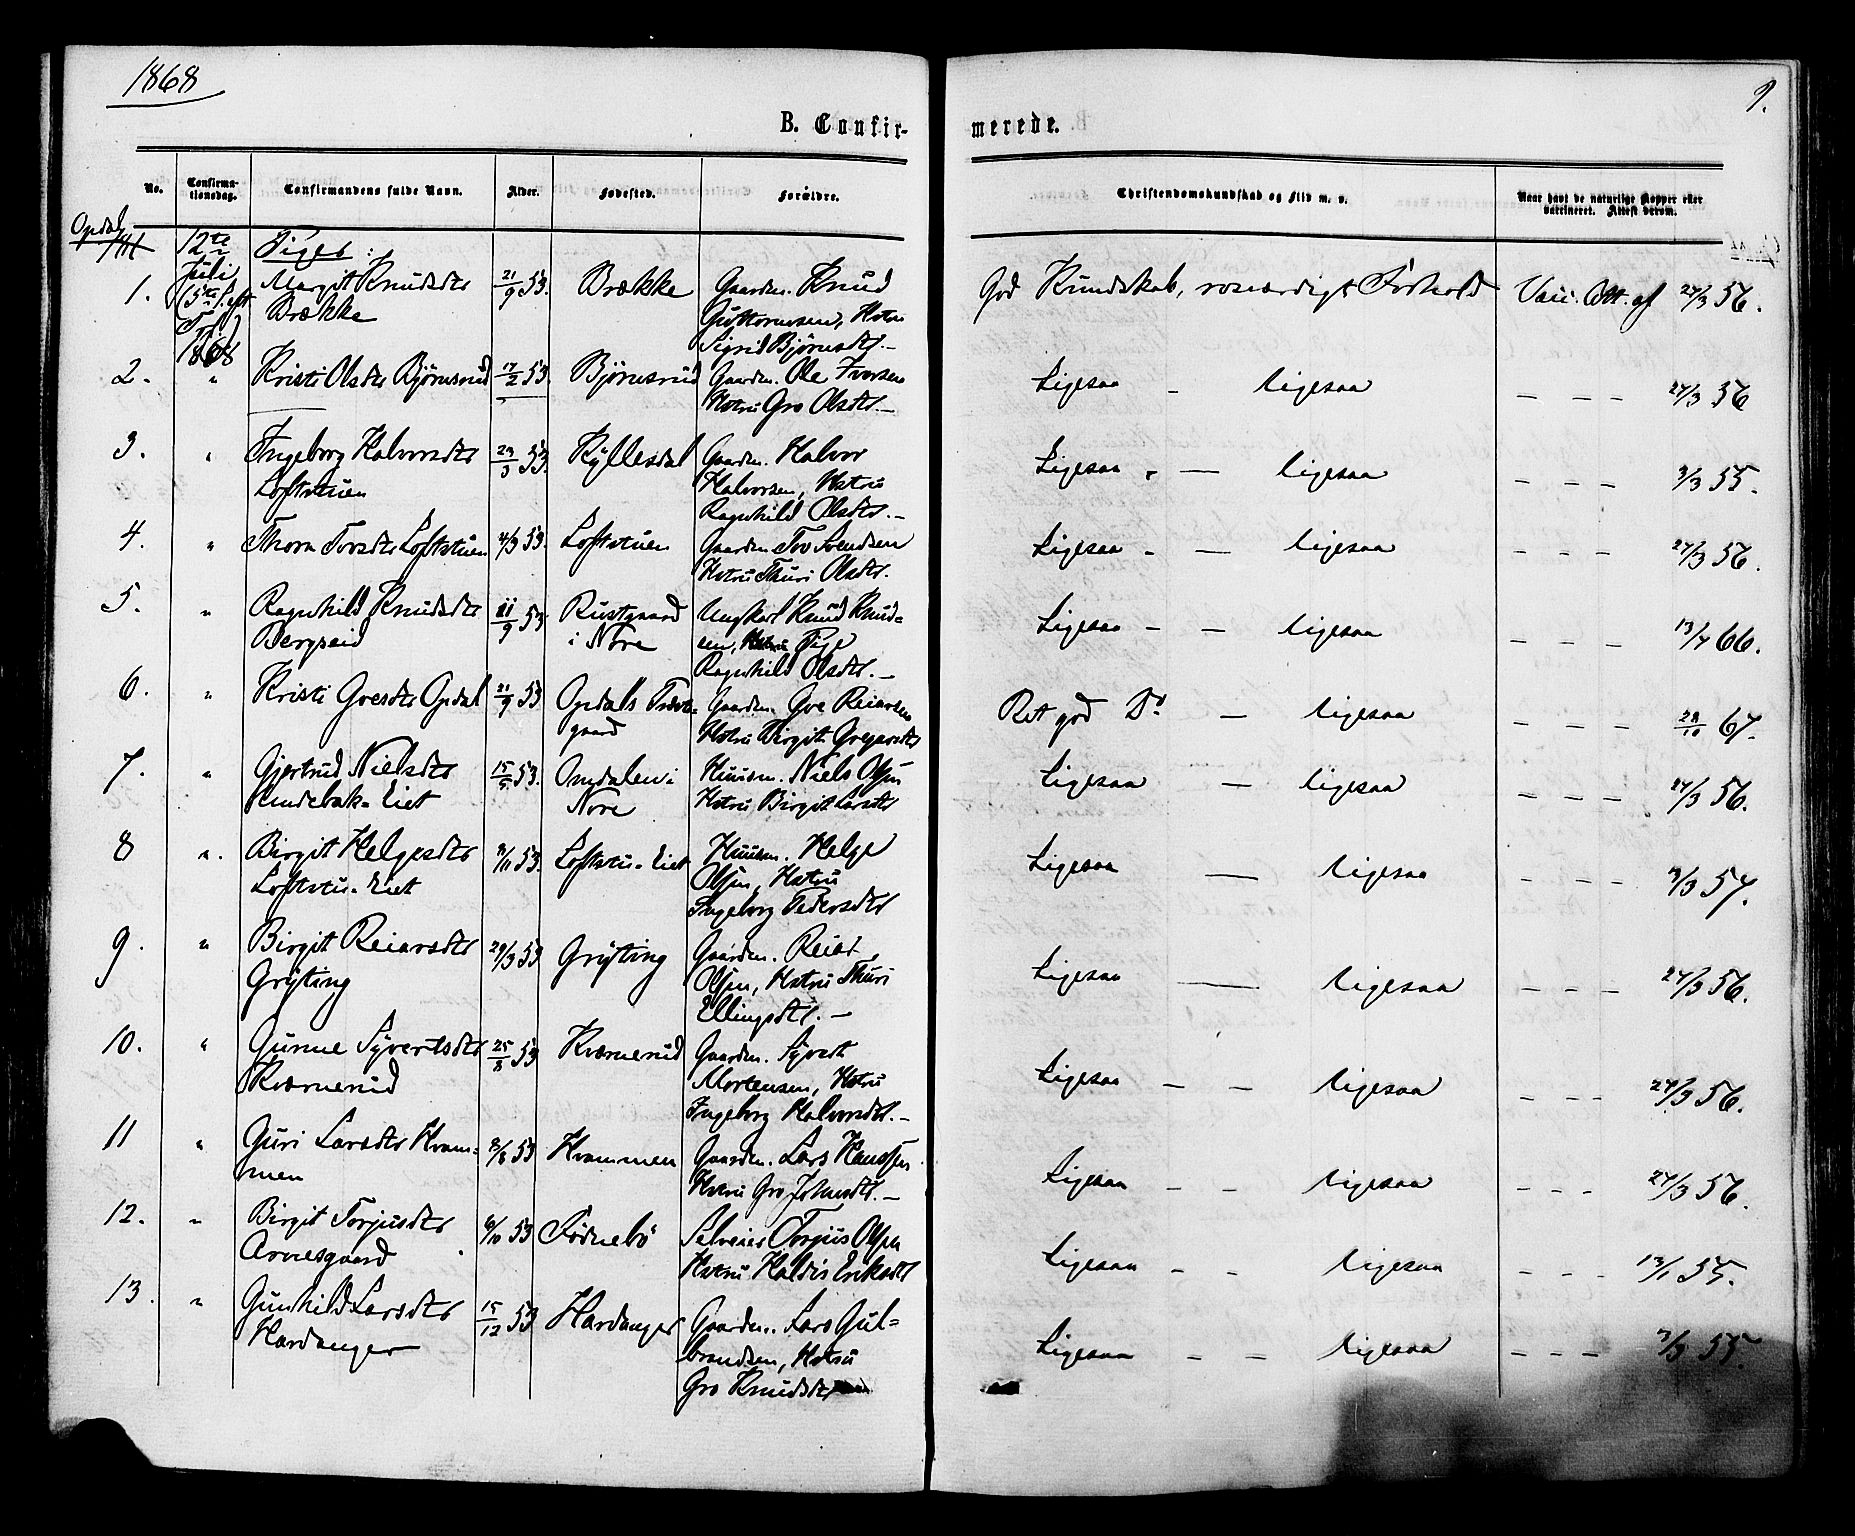 1868
9.
B. Confir-
merede.
No.
Confirma-
tionsdag.
Confirmandens fulde Navn.
Alder.
Fødested.
Forældre.
Christendomskundskab og Flid m. v.
Naar havt de naturlige Kopper eller
vaccineret. Attest derom.
Opdal
12te Juli
(5te S. eft.
Tr.)
1868
Piger:
1. Margit Knudsdtr 21/9 53. Brække Gaardm. Knud God Kundskab, rosværdigt Forhold Vacc. Att. af 27/3 56.
Brække Guttormsen, Hstru
Sigrid Bjørnsdtr. –
2. " Kristi Olsdtr Bjørnsrud 17/2 53. Bjørnsrud Gaardm. Ole Iversen Ligesaa - ligesaa – – – 27/3 56
Hstru Gro Olsdtr. –
3. " Ingeborg Halvorsdtr 29/3 53. Kyllesdal Gaardm. Halvor Ligesaa - — ligesaa – – – 3/3 55.
Loftstuen Halvorsen, Hstru
Ragnhild Olsdtr. –
4. " Thora Torsdtr Loftstuen 4/3 53. Loftstuen Gaardm. Tov Svendsen Ligesaa - — ligesaa – – – 27/3 56.
Hstru Thuri Olsdtr.
5. " Ragnhild Knudsdtr 11/9 53 Rustgaard Ungkarl Knud Knud- Ligesaa - – ligesaa – – – 13/4 66.
Bergseid i Nore sen, Pige
Ragnhild Olsdtr. –
6. " Kristi Goesdtr Opdal 21/9 53 Opdals Præste- Gaardm. Goe Reiarsen Ret god Do — ligesaa – – – 28/10 67.
gaard Hstru Birgit Gregarsdtr
7. " Gjertrud Nielsdtr 15/5 53. Omdalen i Huusm. Niels Olsen Ligesaa — ligesaa – – – 27/3 56.
Kindebak-Eiet Nore Hstru Birgit Larsdtr
8 " Birgit Helgesdtr 3/11 53. Loftstu-Eiet Huusm. Helge Ligesaa — ligesaa – – – 3/3 57.
Loftstu-Eiet Olsen, Hstru
Ingeborg Pedersdtr
9. " Birgit Reiarsdtr 29/3 53 Grÿting Gaardm. Reiar Ligesaa — ligesaa – – – 27/3 56.
Grÿting Olsen, Hstru Thuri
Ellingsdtr. –
10. " Gunne Syvertsdtr 25/8 53 Kværnerud Gaardm. Syvert Ligesaa – – ligesaa – – – 27/3 56.
Kværnerud Mortensen, Hstru
Ingeborg Halvorsdtr. –
11 " Guri Larsdtr Hvam- 8/8 53 Hvammen Gaardm. Lars Hansen Ligesaa – – ligesaa – – – 27/3 56.
men Hstru Gro Johnsdtr. –
12. " Birgit Torjusdtr 6/10 53 Fødnebö Selveier Torjus Olsen Ligesaa – – ligesaa – – – 13/1 55.
Arnesgaard Hstru Haldis Eriksdtr
13. " Gunhild Larsdtr 15/12 53 Hardanger Gaardm. Lars Gul- Ligesaa – – ligesaa – – – 7/3 55.
Hardanger brandsen, Hstru
Gro Knudsdtr